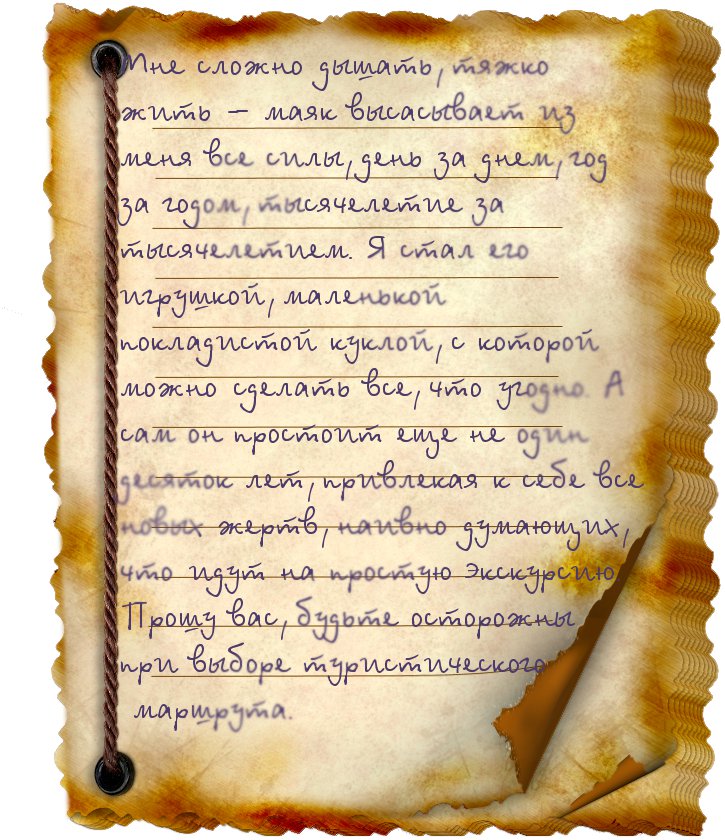 Мне сложно дышать, тяжко
жить – маяк высасывает из
меня все силы, день за днем, год
за годом, тысячелетие за
тысячелетием. Я стал его
игрушкой, маленькой
покладистой куклой, с которой
можно сделать все, что угодно. А
сам он простоит еще не один
десяток лет, привлекая к себе все
новых жертв, наивно думающих,
что идут на простую экскурсию.
Прошу вас, будьте осторожны
при выборе туристического
маршрута.